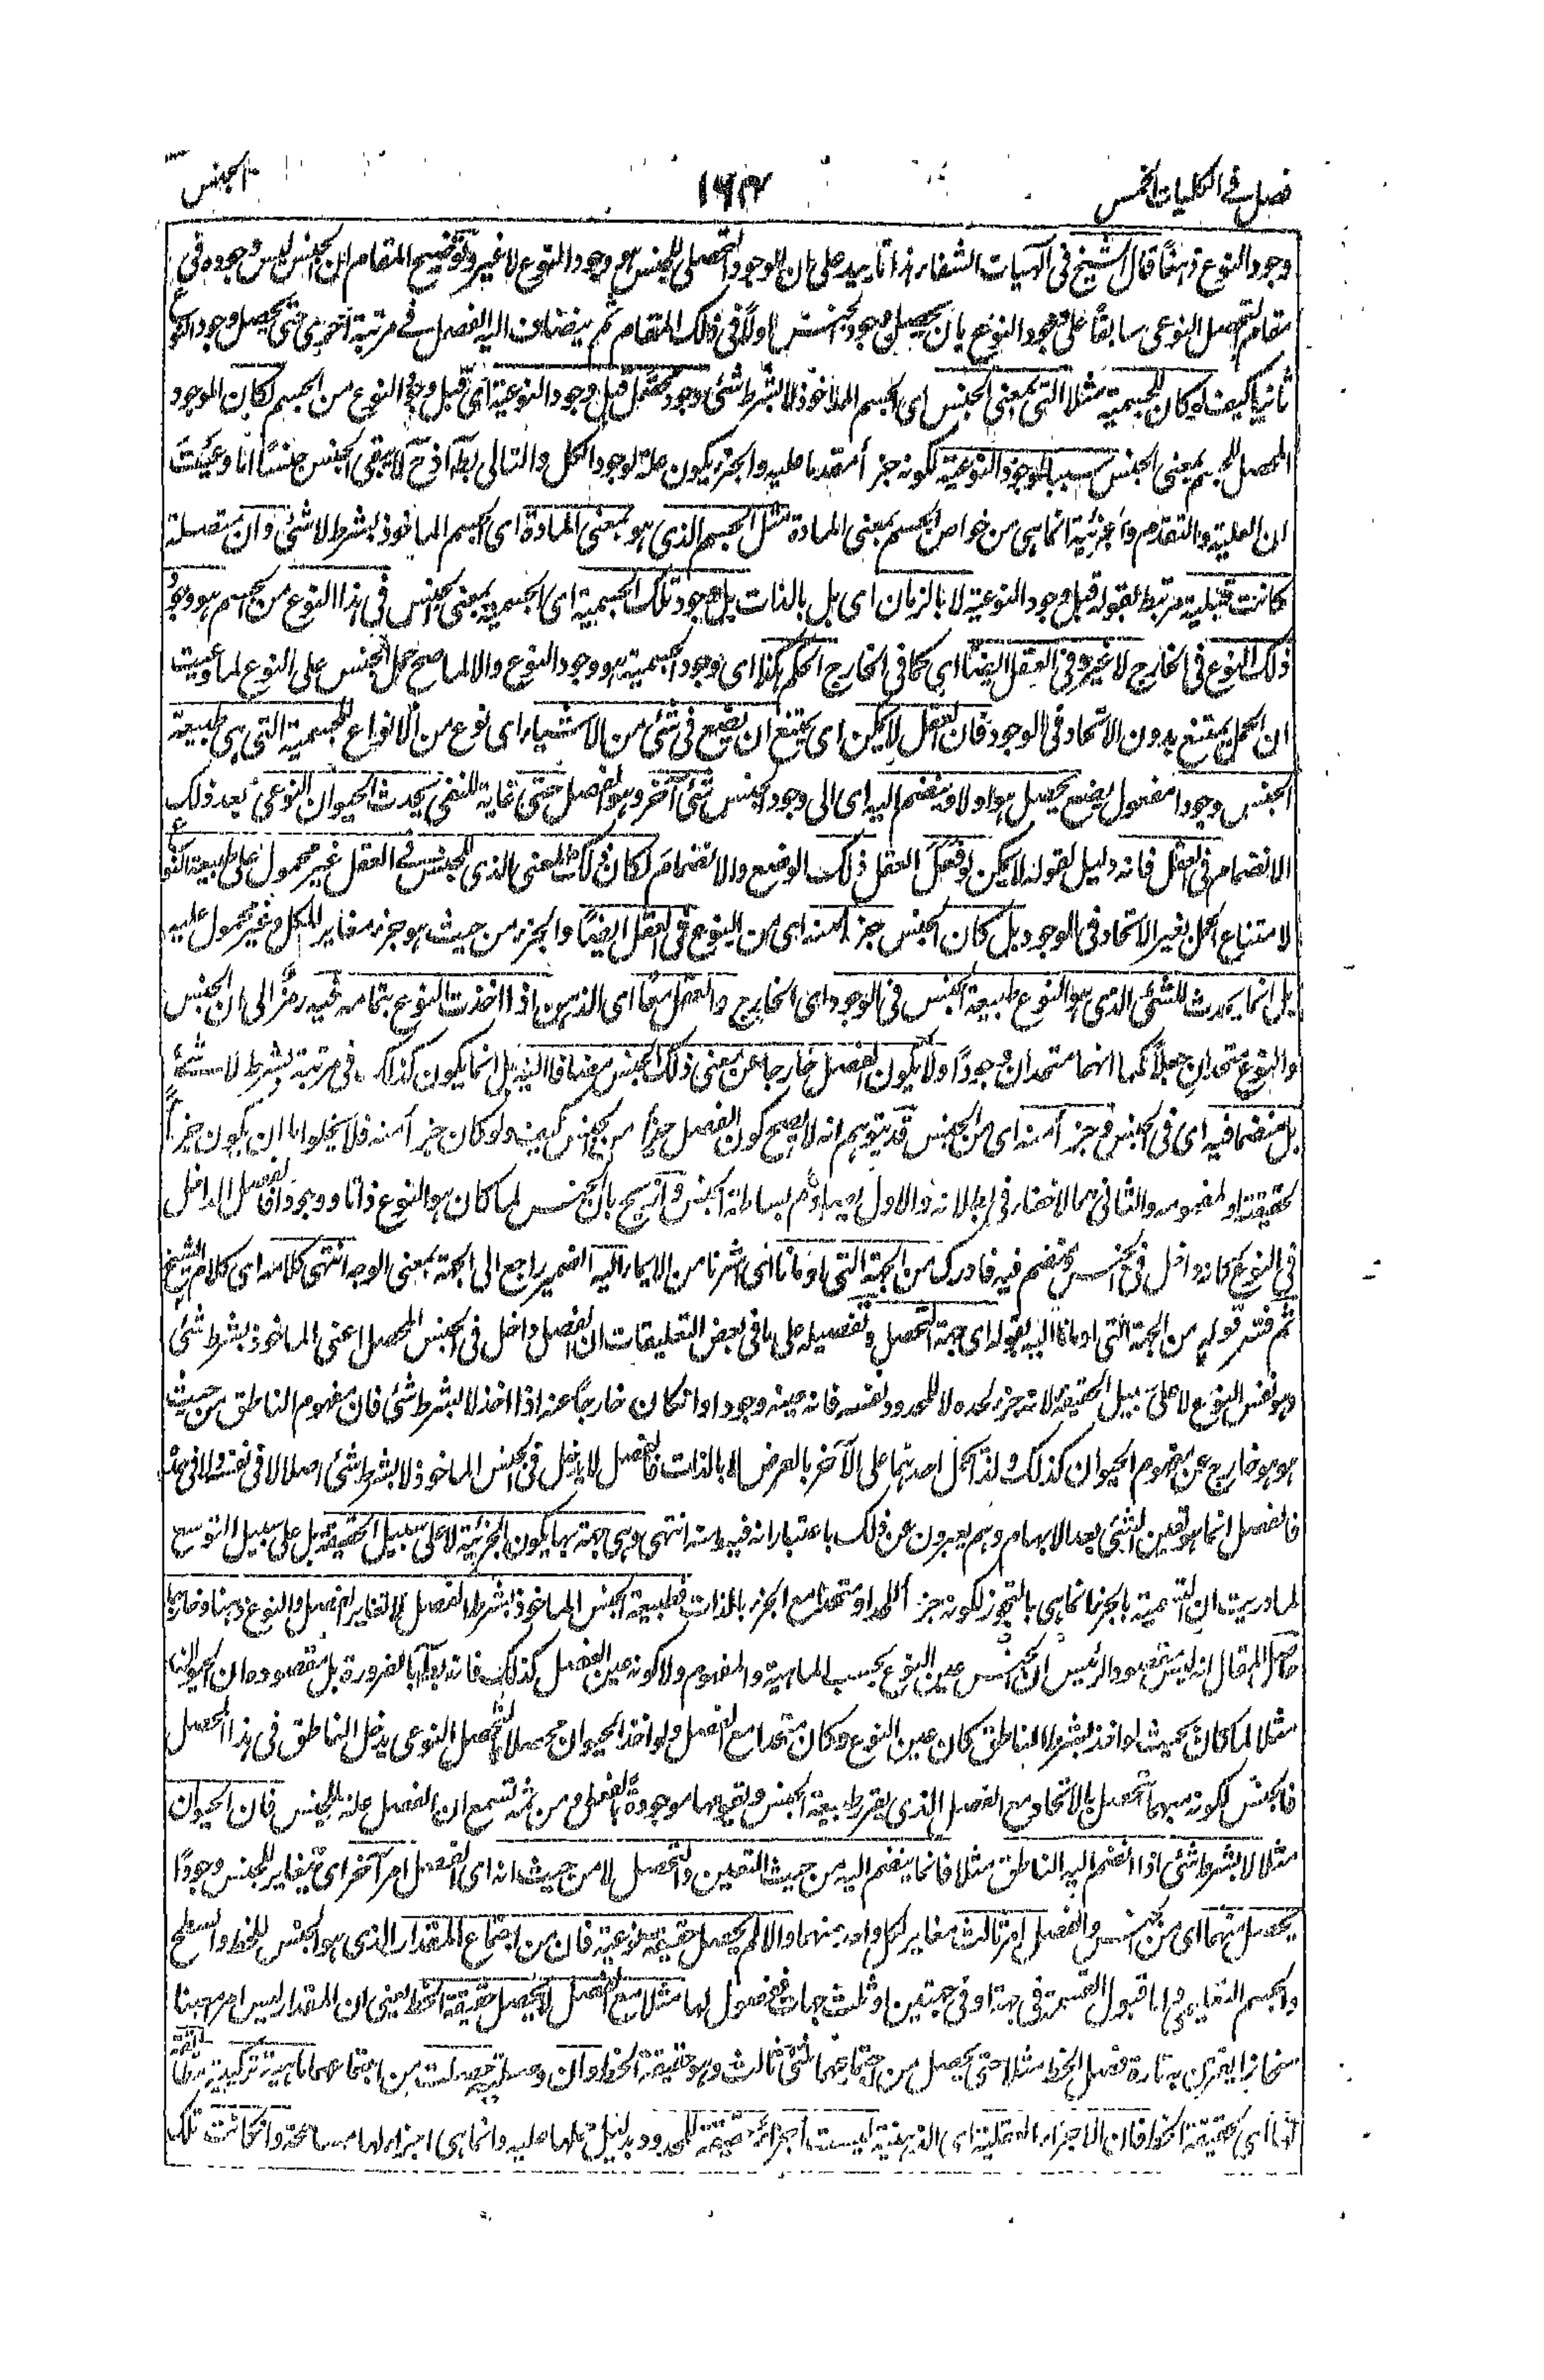 فصل في الكليات الخمس ١٦٣ الجنس
وجود النوع ذهنًا قال الشيخ في الٰهيات الشفاء هذا تاييد على ان الوجود التحصلي للجنس هو وجود النوع لا غير وتوضيح المقام ان الجنس ليس وجوده في
مقام التحصل النوعي سابقًا على وجود النوع بان يحصل وجود الجنس اولاً في ذلك المقام ثم ينضاف اليه الفصل في مرتبة اخرى حتى يحصل وجود النوع
ثانيا كيف لو كان للجسمية مثلا التي بمعنى الجنس اى الجسم الماخوذ لا بشرط شئ وجود محصل قبل وجود النوعية اى قبل وجود النوع من الجسم لكان الموجود
المحصل للجسم بمعنى الجنس سببا لوجود النوعية لكونه جزأ مقدما عليه والجزء يكون علة لوجود الكل والتالي بط اذ ح لا يبقى الجنس جنسًا وعيت
ان العلية والتقدم والجزئية انما هي من خواص الجسم بمعنى المادة مثل الجسم الذي هو بمعنى المادة اى الجسم الماخوذ بشرط لا شئ وان متصلة
كانت قبلية مرتبط بقوله قبل وجود النوعية لا بالزمان اى بل بالذات بل وجود تلك الجسمية اى الجسمية بمعنى الجنس في هذا النوع من الجسم هو وجود
ذلك النوع في الخارج لا غير وفي العقل ايضًا اى كما في الخارج الحكم هكذا اى وجود الجسمية هو وجود النوع والا لما صح حمل الجنس على النوع لما وعيت
ان الحمل يمتنع بدون الاتحاد في الوجود فان العقل لا يمكن اى يمتنع ان يضع في شئ من الاشياء اى نوع من الانواع للجسمية التي هي طبيعة
الجنس وجودا مفعول يضع يحصل هو اولا وينضم اليه اى الى وجود الجنس شئ آخر وهو الفصل حتى غاية للنفي يحدث الحيوان النوعي بعد ذلك
الانضمام في العقل فانه دليل لقوله لا يمكن لو فعل العقل ذلك الوضع والانضمام لكان ذلك المعنى الذي للجنس في العقل غير محمول على طبيعة النوع
لامتناع الحمل بغير الاتحاد في الوجود بل كان الجنس جزأ منه اى من النوع في العقل ايضًا والجزء من حيث هو جزء مغاير للكل وغير محمول عليه
بل انما يحدث للشئ الذي هو النوع طبيعة الجنس في الوجود اى الخارج والعقل معًا اى الذهن اذا اخذت النوع بتمامه فيه رمز الى ان الجنس
والنوع متحدان جعلاً كما انهما متحدان وجودًا ولا يكون الفصل خارجا عن معنى ذلك الجنس مضافا اليه بل انما يكون كذلك في مرتبة بشرط لا شئ
بل متضمنا فيه اى في الجنس وجزأ منه اى من الجنس قد يتوهم انه لا يصح كون الفصل جزأ من الجنس كيف ولو كان جزأ منه فلا يخلو اما ان يكون جزأ
لحقيقته او لمفهومه والثاني مما لا خفاء في بطلانه والاول يصادم بساطة الجنس بان الجنس لما كان هو النوع ذاتا ووجودا فالفصل الداخل
في النوع كانه داخل في الجنس ومنضم فيه فادرك من الجهة التي اومأنا اى اشرنا من الايماء اليه الضمير راجع الى الجهة بمعنى الوجه انتهى كلامه اى كلام الشيخ
ثم فسر قوله من الجهة التي اومأنا اليه بقوله اى جهة التحصل وتفصيله على ما في بعض التعليقات ان الفصل داخل في الجنس المحصل اعني الماخوذ بشرط شئ
وهو نفس النوع لا على سبيل الحقيقة لانه جزء لحده لا للمحدود نفسه فانه عينه وجودا وانكان خارجًا عنه اذا اخذ لا بشرط شئ فان مفهوم الناطق من حيث
هو هو خارج عن مفهوم الحيوان كذلك ولذا حمل احدهما على الآخر بالعرض لا بالذات فالفصل لا يدخل في الجنس الماخوذ لا بشرط شئ اصلا لا في نفسه ولا في حده
فالفصل انما هو تعين الشئ بعد الابهام وهم يعبرون عن ذلك باعتبار انه فيه ومنه انتهى وهي جهة بها يكون الجزئية لا على سبيل الحقيقة بل على سبيل التوسع
لما دريت ان التسمية بالجزء انما هي بالتجوز لكونه جزأ للحد او متحدا مع الجزء بالذات فطبيعة الجنس الماخوذ بشرط الفصل لا تغاير الفصل والنوع ذهنا وخارجا
حاصل المقال انه ليس مقصود الرئيس ان الجنس عين النوع بحسب الماهية والمفهوم ولا كونه عين الفصل كذلك فانه بط بالضرورة بل مقصوده ان الحيوان
مثلا لما كان بحيث لو اخذ بشرط الناطق كان عين النوع وكان متحدا مع الفصل ولو اخذ الحيوان محصلا بالتحصل النوعي يدخل الناطق في هذا المحصل
فالجنس لكونه مبهما يتحصل بالاتحاد مع الفصل الذي يقرر طبيعة الجنس ويقيمها موجودة بالفعل ومن ثمه تسمع ان الفصل علة للجنس فان الحيوان
مثلا لا بشرط شئ اذا انضم اليه الناطق مثلا فانما ينضم اليه من حيث التعين والتحصل لا من حيث انه اى الفصل امر آخر اى مغاير للجنس وجودًا
يحصل منهما اى من الجنس والفصل امر ثالث مغاير لكل واحد منهما والا لم يحصل حقيقة نوعية فان من اجتماع المقدار الذي هو الجنس للخط والسطح
والجسم التعليمي واما قبول القسمة في جهة او في جهتين او ثلث جهات ففصول لها مثلا مع الفصل لا يحصل حقيقة الخط يعني ان المقدار ليس امر معينا
منحازا يقترن به تارة فصل الخط مثلا حتى يحصل من اجتماعهما شئ ثالث وهو حقيقة الخط وان وصلية حصلت من اجتماعهما ماهية تركيبية
لها اى لحقيقة الخط فان الاجزاء العقلية اى الذهنية ليست اجزاء حقيقة للمحدود بدليل حملها عليه وانما هي اجزاء لها مسامحة وانكانت تلك